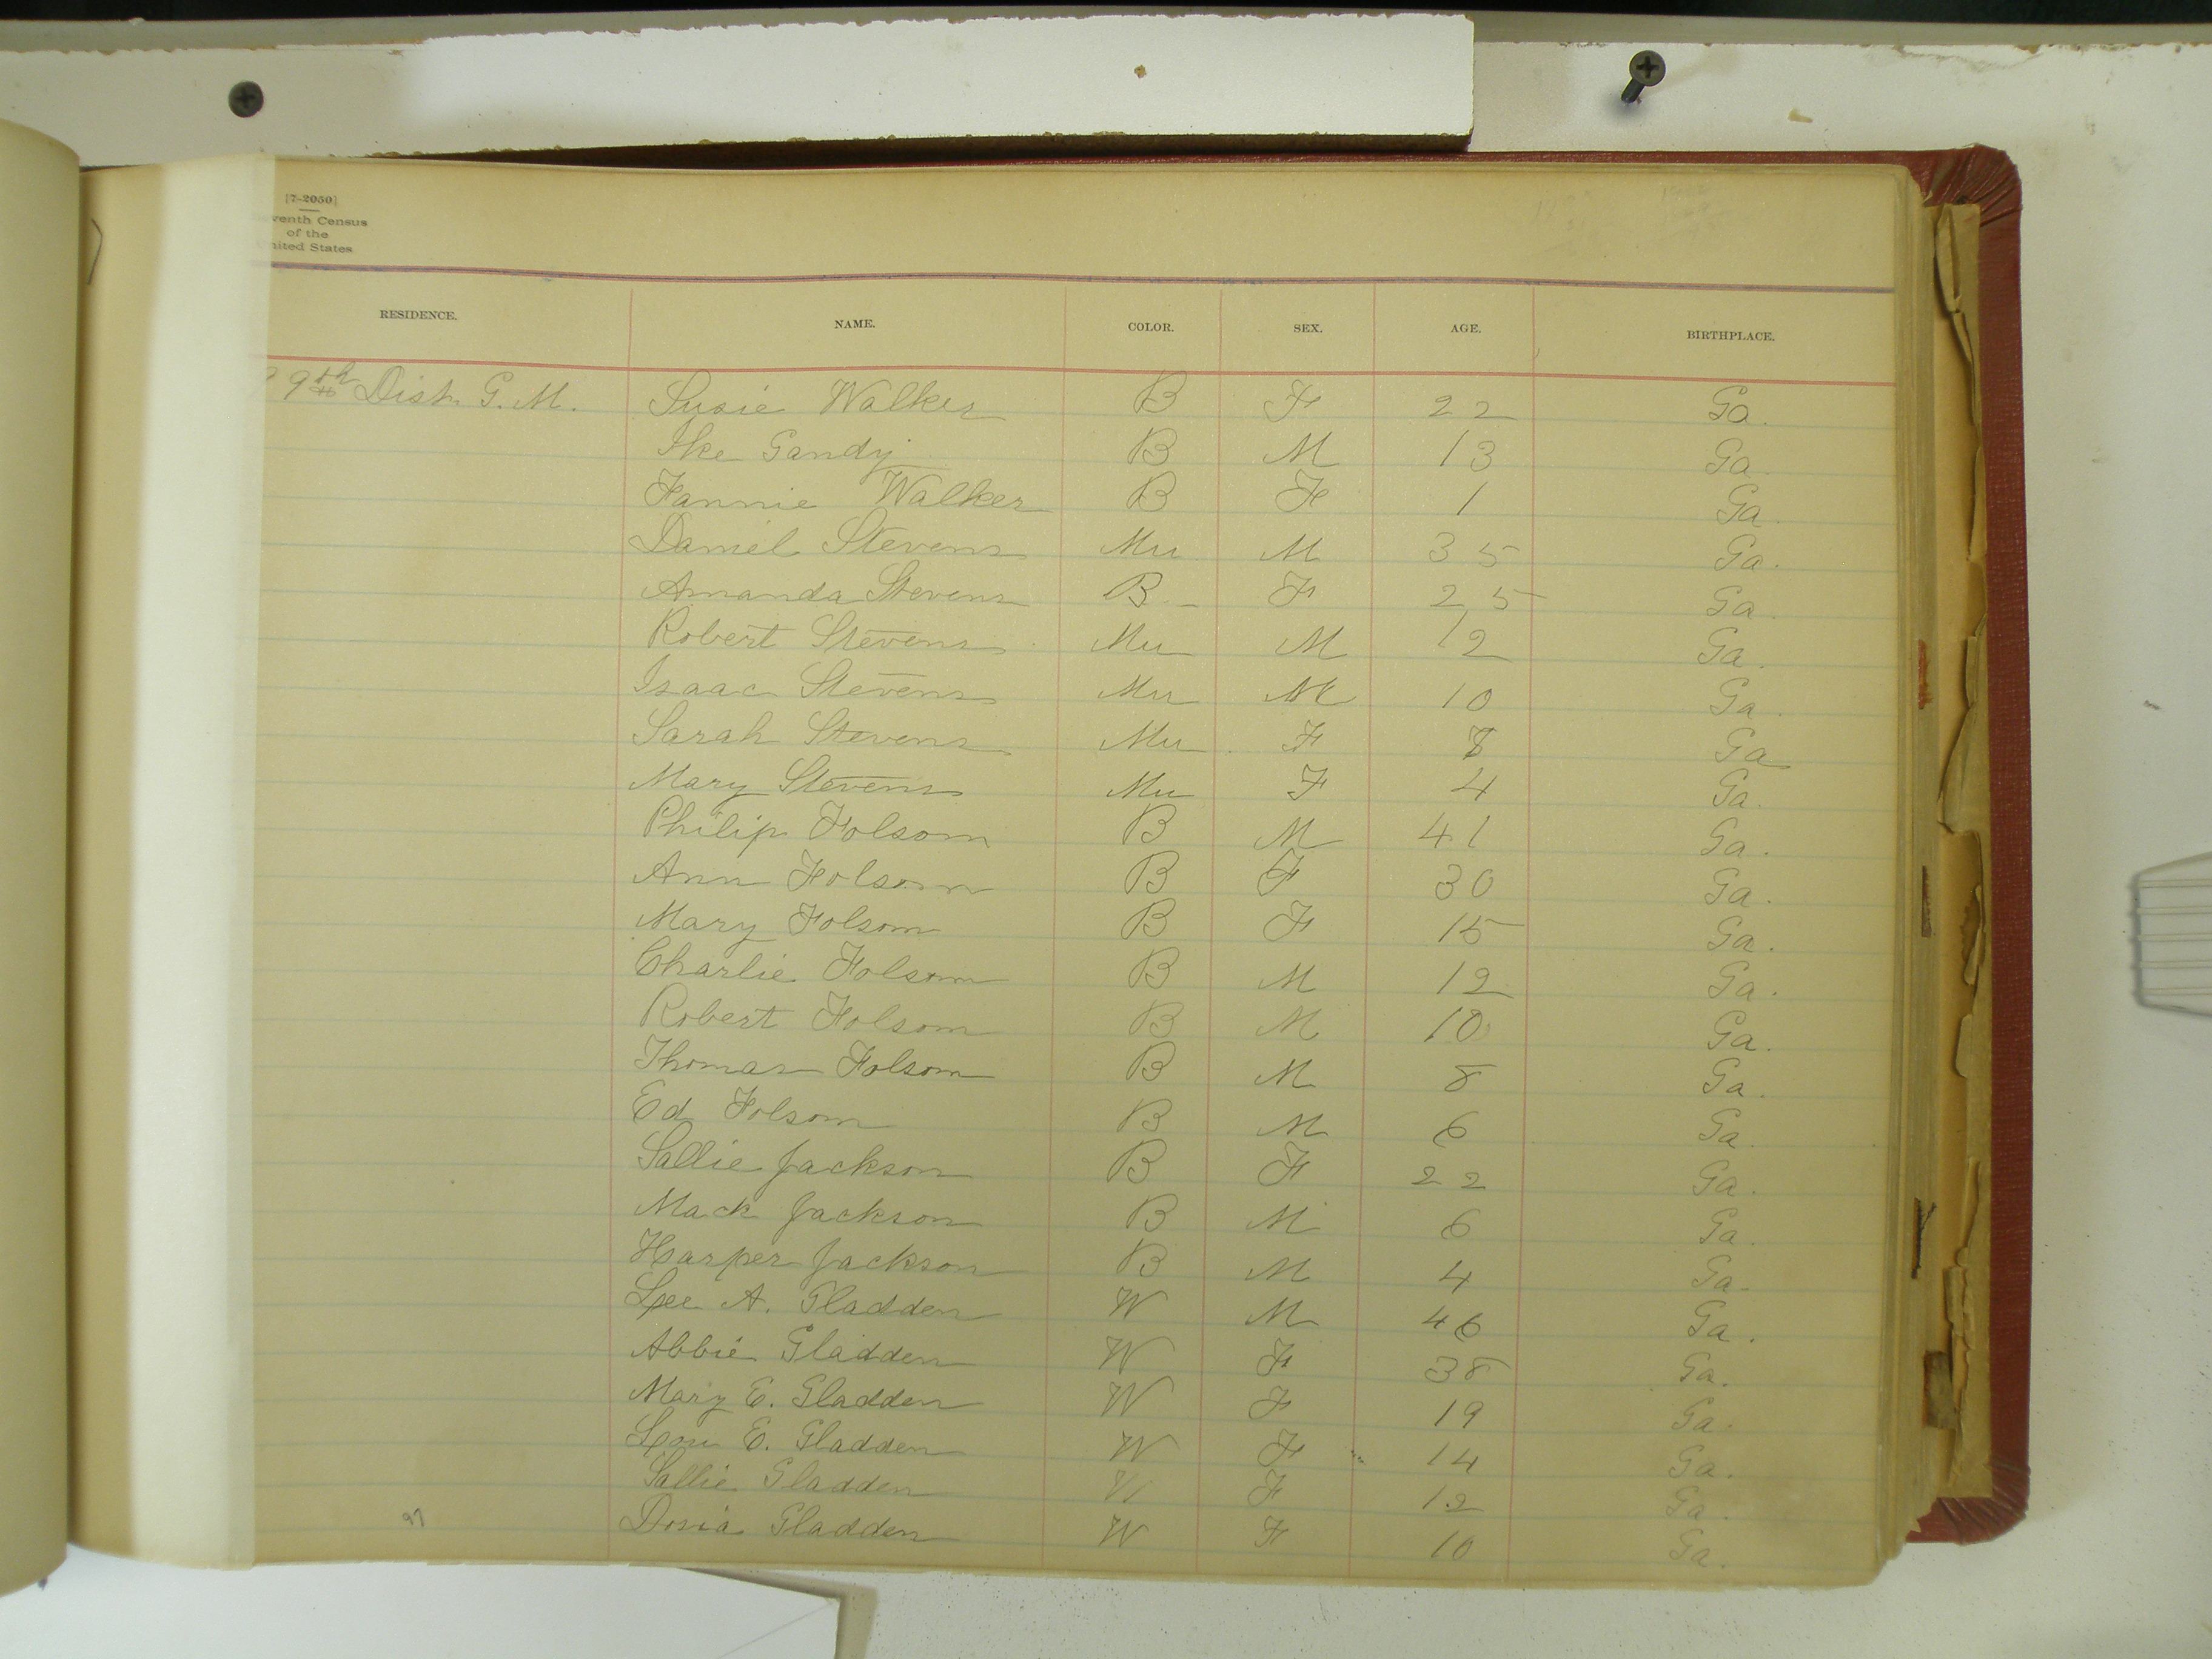 [7-2050]
venth Census
of the
nited States
RESIDENCE. NAME. COLOR. SEX. AGE. BIRTHPLACE.
99th Dist. G. M. Susie Walker B F 22 Ga.
Ike Gandy B M 13 Ga.
Fannie Walker B F 1 Ga.
Daniel Stevens Mu M 35 Ga.
Amanda Stevens B F 25 Ga.
Robert Stevens Mu M 12 Ga.
Isaac Stevens Mu M 10 Ga.
Sarah Stevens Mu F 8 Ga
Mary Stevens Mu F 4 Ga.
Philip Folsom B M 41 Ga.
Ann Folsom B F 30 Ga.
Mary Folsom B F 15 Ga.
Charlie Folsom B M 12 Ga.
Robert Folsom B M 10 Ga.
Thomas Folsom B M 8 Ga.
Ed Folsom B M 6 Ga.
Sallie Jackson B F 22 Ga.
Mack Jackson B M 6 Ga.
Harper Jackson B M 4 Ga.
Lee A. Gladden W M 46 Ga.
Abbie Gladden W F 38 Ga.
Mary E. Gladden W F 19 Ga.
Lou E. Gladden W F 14 Ga.
Sallie Gladden W F 12 Ga.
Dosia Gladden W F 10 Ga.
97